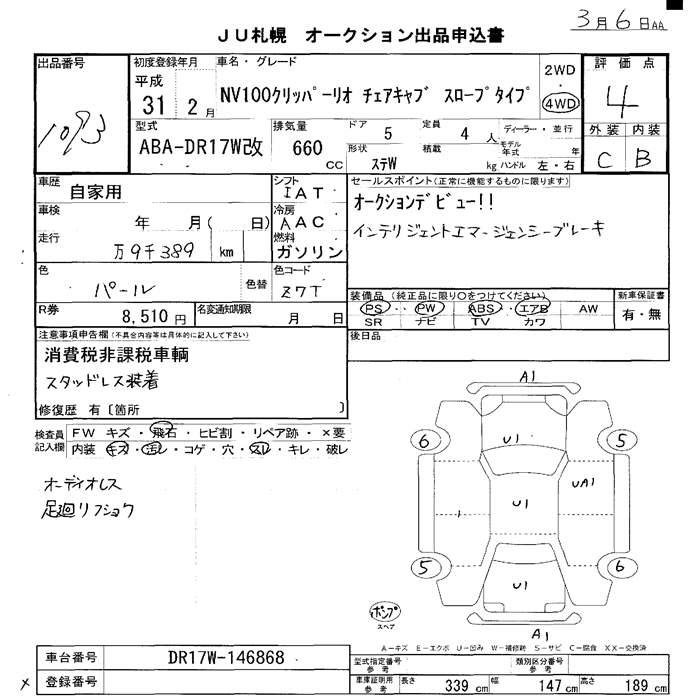 3月6日AA
JU札幌 オークション出品申込書
出品番号 初度登録年月 車名・グレード 評価点
1093 平成 31 2月 NV100クリッパーリオ チェアキャブ スロープタイプ 2WD 4WD 4
型式 排気量 ドア 5 定員 4人 ディーラー・並行 外装 内装
ABA-DR17W改 660 CC 形状 ステW 積載 kg モデル年式 年 ハンドル 左・右 C B
車歴 自家用 シフト IAT セールスポイント(正常に機能するものに限ります)
車検 年 月( 日) 冷房 AAC オークションデビュー!!
走行 万9千389 km 燃料 ガソリン インテリジェントエマージェンシーブレーキ
色 パール 色替 色コード Z7T
装備品(純正品に限り○をつけてください) 新車保証書
R券 8,510円 名変通知期限 月 日 PS・PW ABS・エアB AW 有・無
SR ナビ TV カワ
注意事項申告欄(不具合内容等は具体的に記入して下さい) 後日品
消費税非課税車輌
スタッドレス装着
修復歴 有〔箇所 〕
検査員記入欄 FW キズ・飛石・ヒビ割・リペア跡・×要
内装 キズ・汚レ・コゲ・穴・スレ・キレ・破レ
オーディオレス
足廻リフショク
A1
6 U1 5
U1 UA1
5 U1 6
A1
ポンプ
スペア
A-キズ E-エクボ U-凹み W-補修跡 S-サビ C-腐食 XX-交換済
車台番号 DR17W-146868 型式指定番号 参考 類別区分番号 参考
登録番号 車庫証明用 参考 長さ 339cm 幅 147cm 高さ 189cm